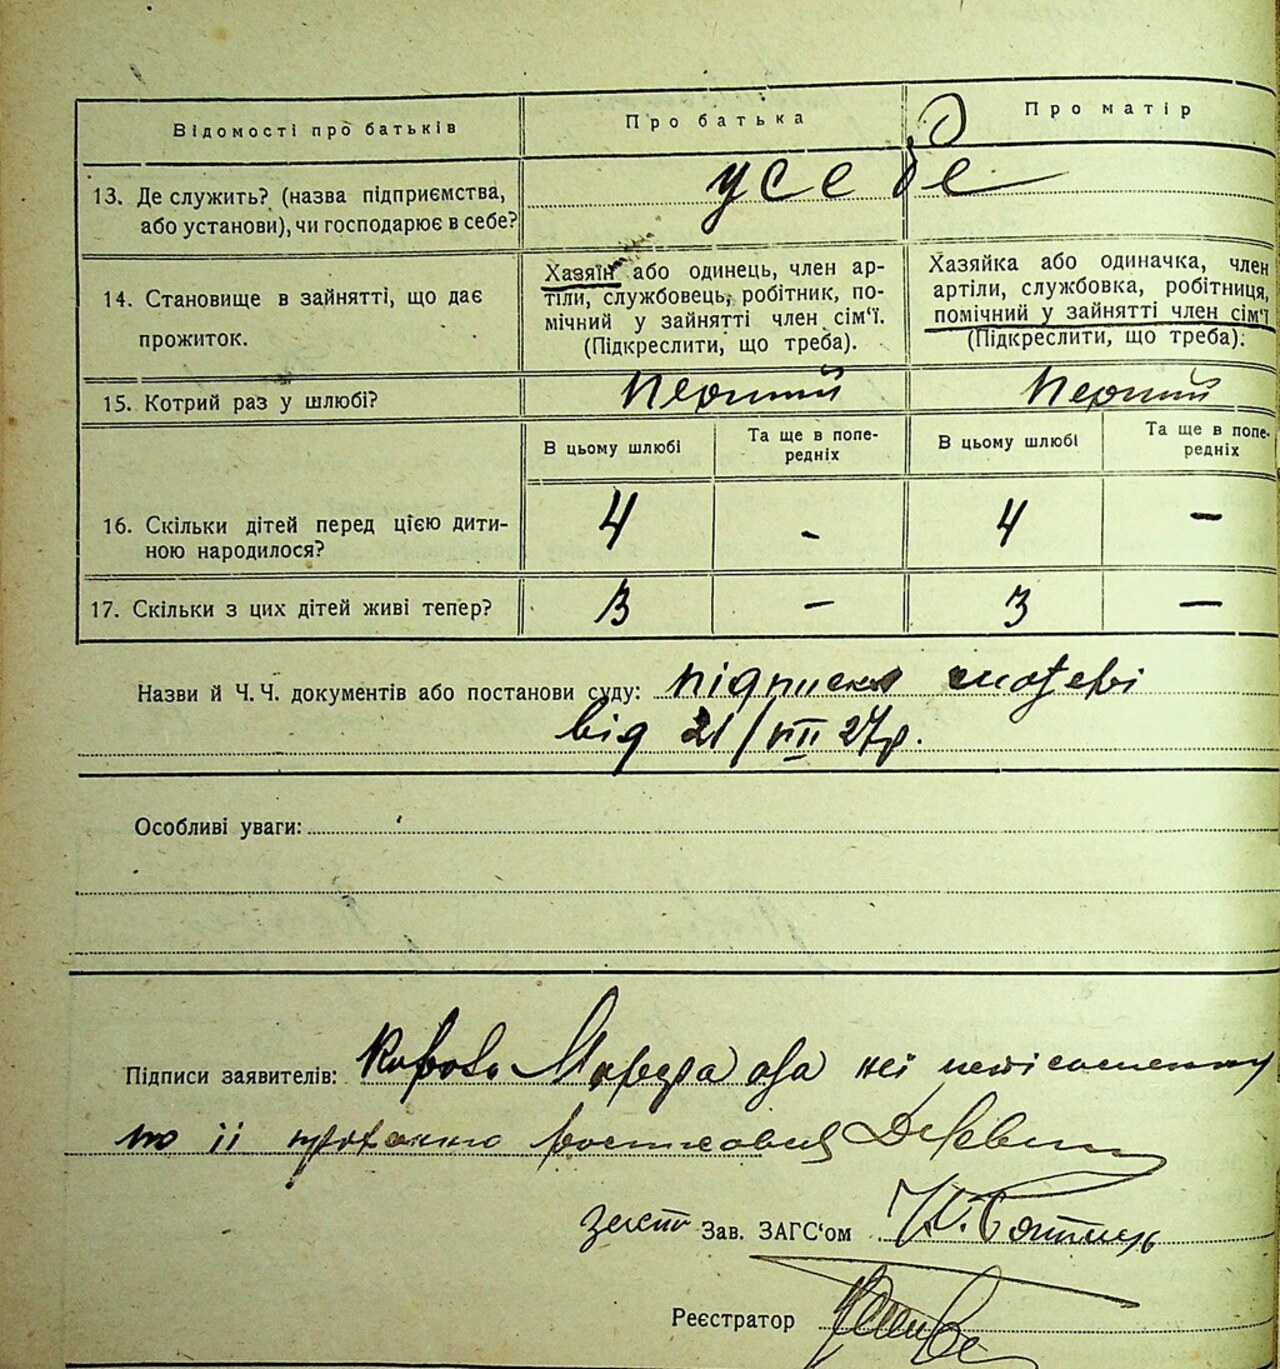 Відомості про батьків
Про батька
Про матір
13. Де служить? (назва підприємства,
або установи), чи господарює в себе?
у себе
14. Становище в зайнятті, що дає
прожиток.
Хазяїн або одинець, член ар-
тіли, службовець, робітник, по-
мічний у зайнятті член сім‘ї.
(Підкреслити, що треба).
Хазяйка або одиначка, член
артіли, службовка, робітниця,
помічний у зайнятті член сім‘ї
(Підкреслити, що треба).
15. Котрий раз у шлюбі?
перший
перший
В цьому шлюбі
Та ще в попе-
редніх
В цьому шлюбі
Та ще в попе-
редніх
16. Скільки дітей перед цією дити-
ною народилося?
4
-
4
-
17. Скільки з цих дітей живі тепер?
3
-
3
-
Назви й Ч. Ч. документів або постанови суду: підписка матері
від 21/VIII 27р.
Особливі уваги:
Підписи заявителів:
її
Зав. ЗАГС‘ом
Реєстратор